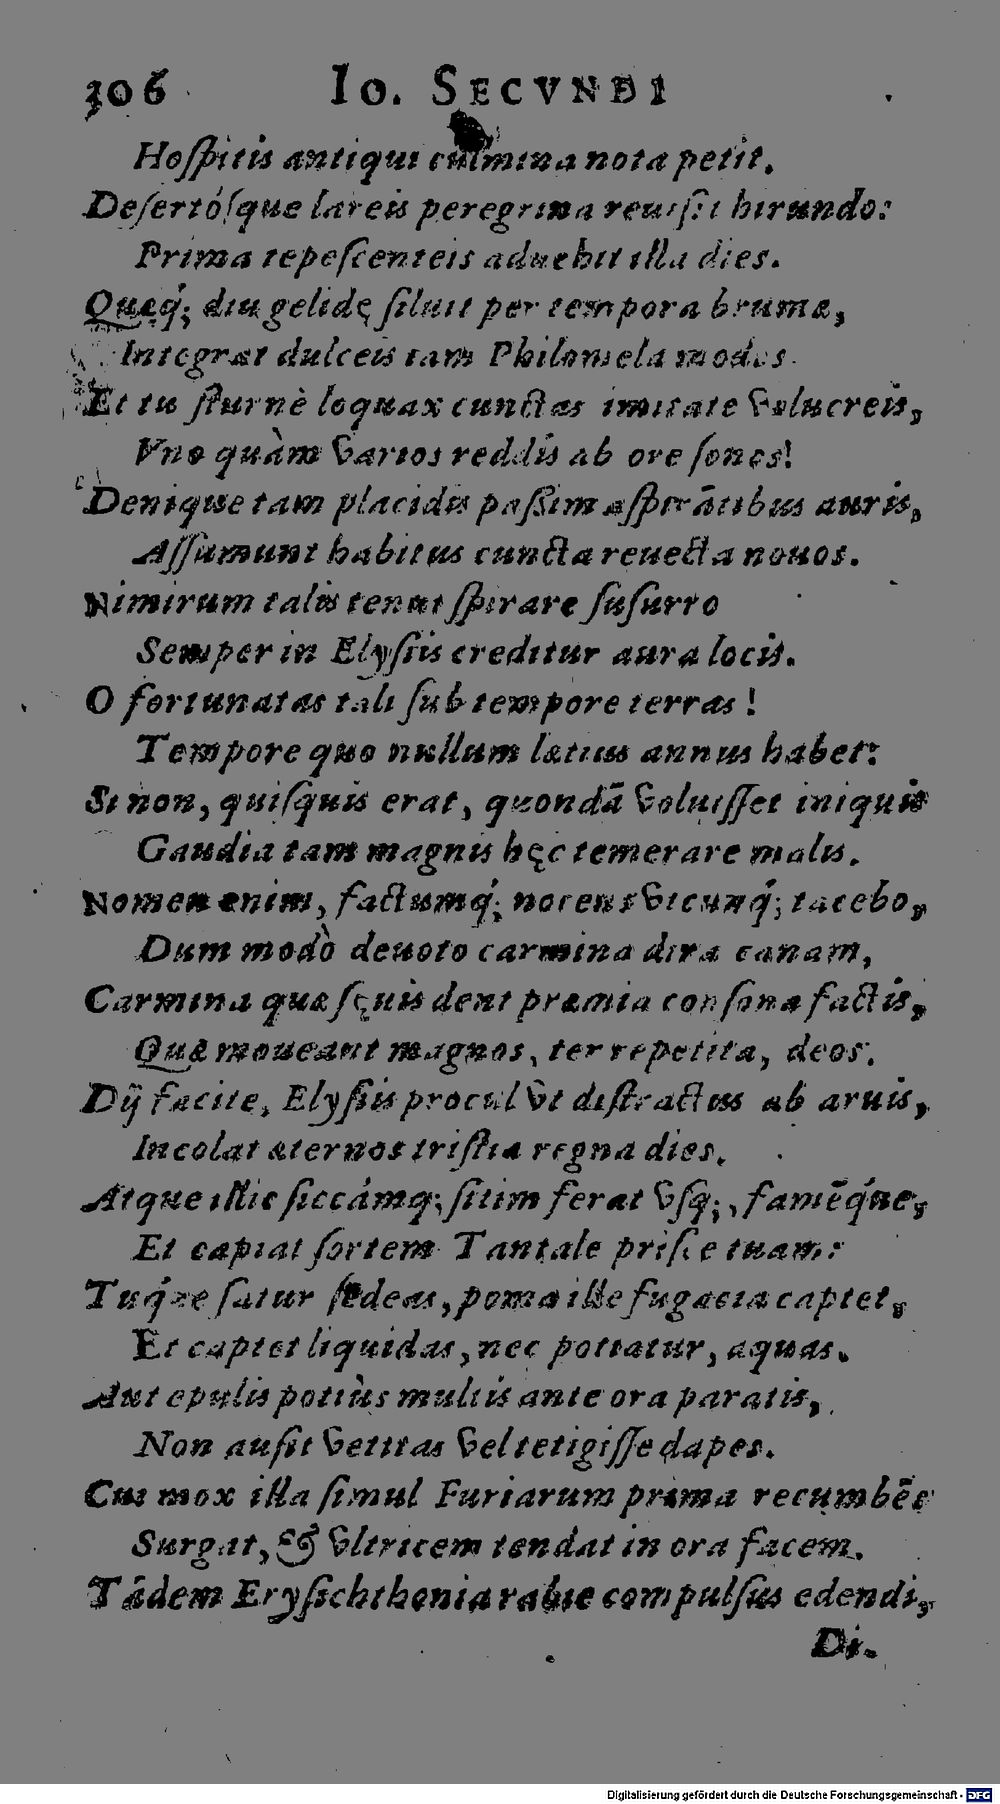 306 Io. SECVNDI
Hoſpitis antiqui culmina nota petit.
Deſertóſque lareis peregrina reuiſit hirundo:
Prima tepeſcenteis aduehit illa dies.
Quęq́; diu gelidę ſiluit per tempora brumæ,
Integrat dulceis iam Philomela modos.
Et tu ſturnè loquax cunctas imitate volucreis,
Vno quàm varios reddis ab ore ſonos!
Denique tam placidis paßim aſpirātibus auris,
Aſſumunt habitus cuncta reuecta nouos.
Nimirum talis tenui ſpirare ſuſurro
Semper in Elyſiis creditur aura locis.
O fortunatas tali ſub tempore terras!
Tempore quo nullum lætius annus habet:
Si non, quiſquis erat, quondā voluiſſet iniquis
Gaudia tam magnis hęc temerare malis.
Nomen enim, factumq́; nocens vtcunq́; tacebo,
Dum modò deuoto carmina dira canam,
Carmina quæ ſęuis dent præmia conſona factis,
Quæ moueant magnos, ter repetita, deos.
Dÿ facite, Elyſiis procul vt diſtractus ab aruis,
Incolat æternos triſtia regna dies.
Atque illic ſiccámq; ſitim ferat vſq;, famēq́ue,
Et capiat ſortem Tantale priſce tuam:
Tuq́ue ſatur ſedeas, poma ille fugacia captet,
Et captet liquidas, nec potiatur, aquas.
Aut epulis potiùs multis ante ora paratis,
Non auſit vetitas vel tetigiſſe dapes.
Cui mox illa ſimul Furiarum prima recumbēs
Surgat, & vltricem tendat in ora facem.
Tādem Eryſichthonia rabie compulſus edendi,
Di-
Digitalisierung gefördert durch die Deutsche Forschungsgemeinschaft - DFG